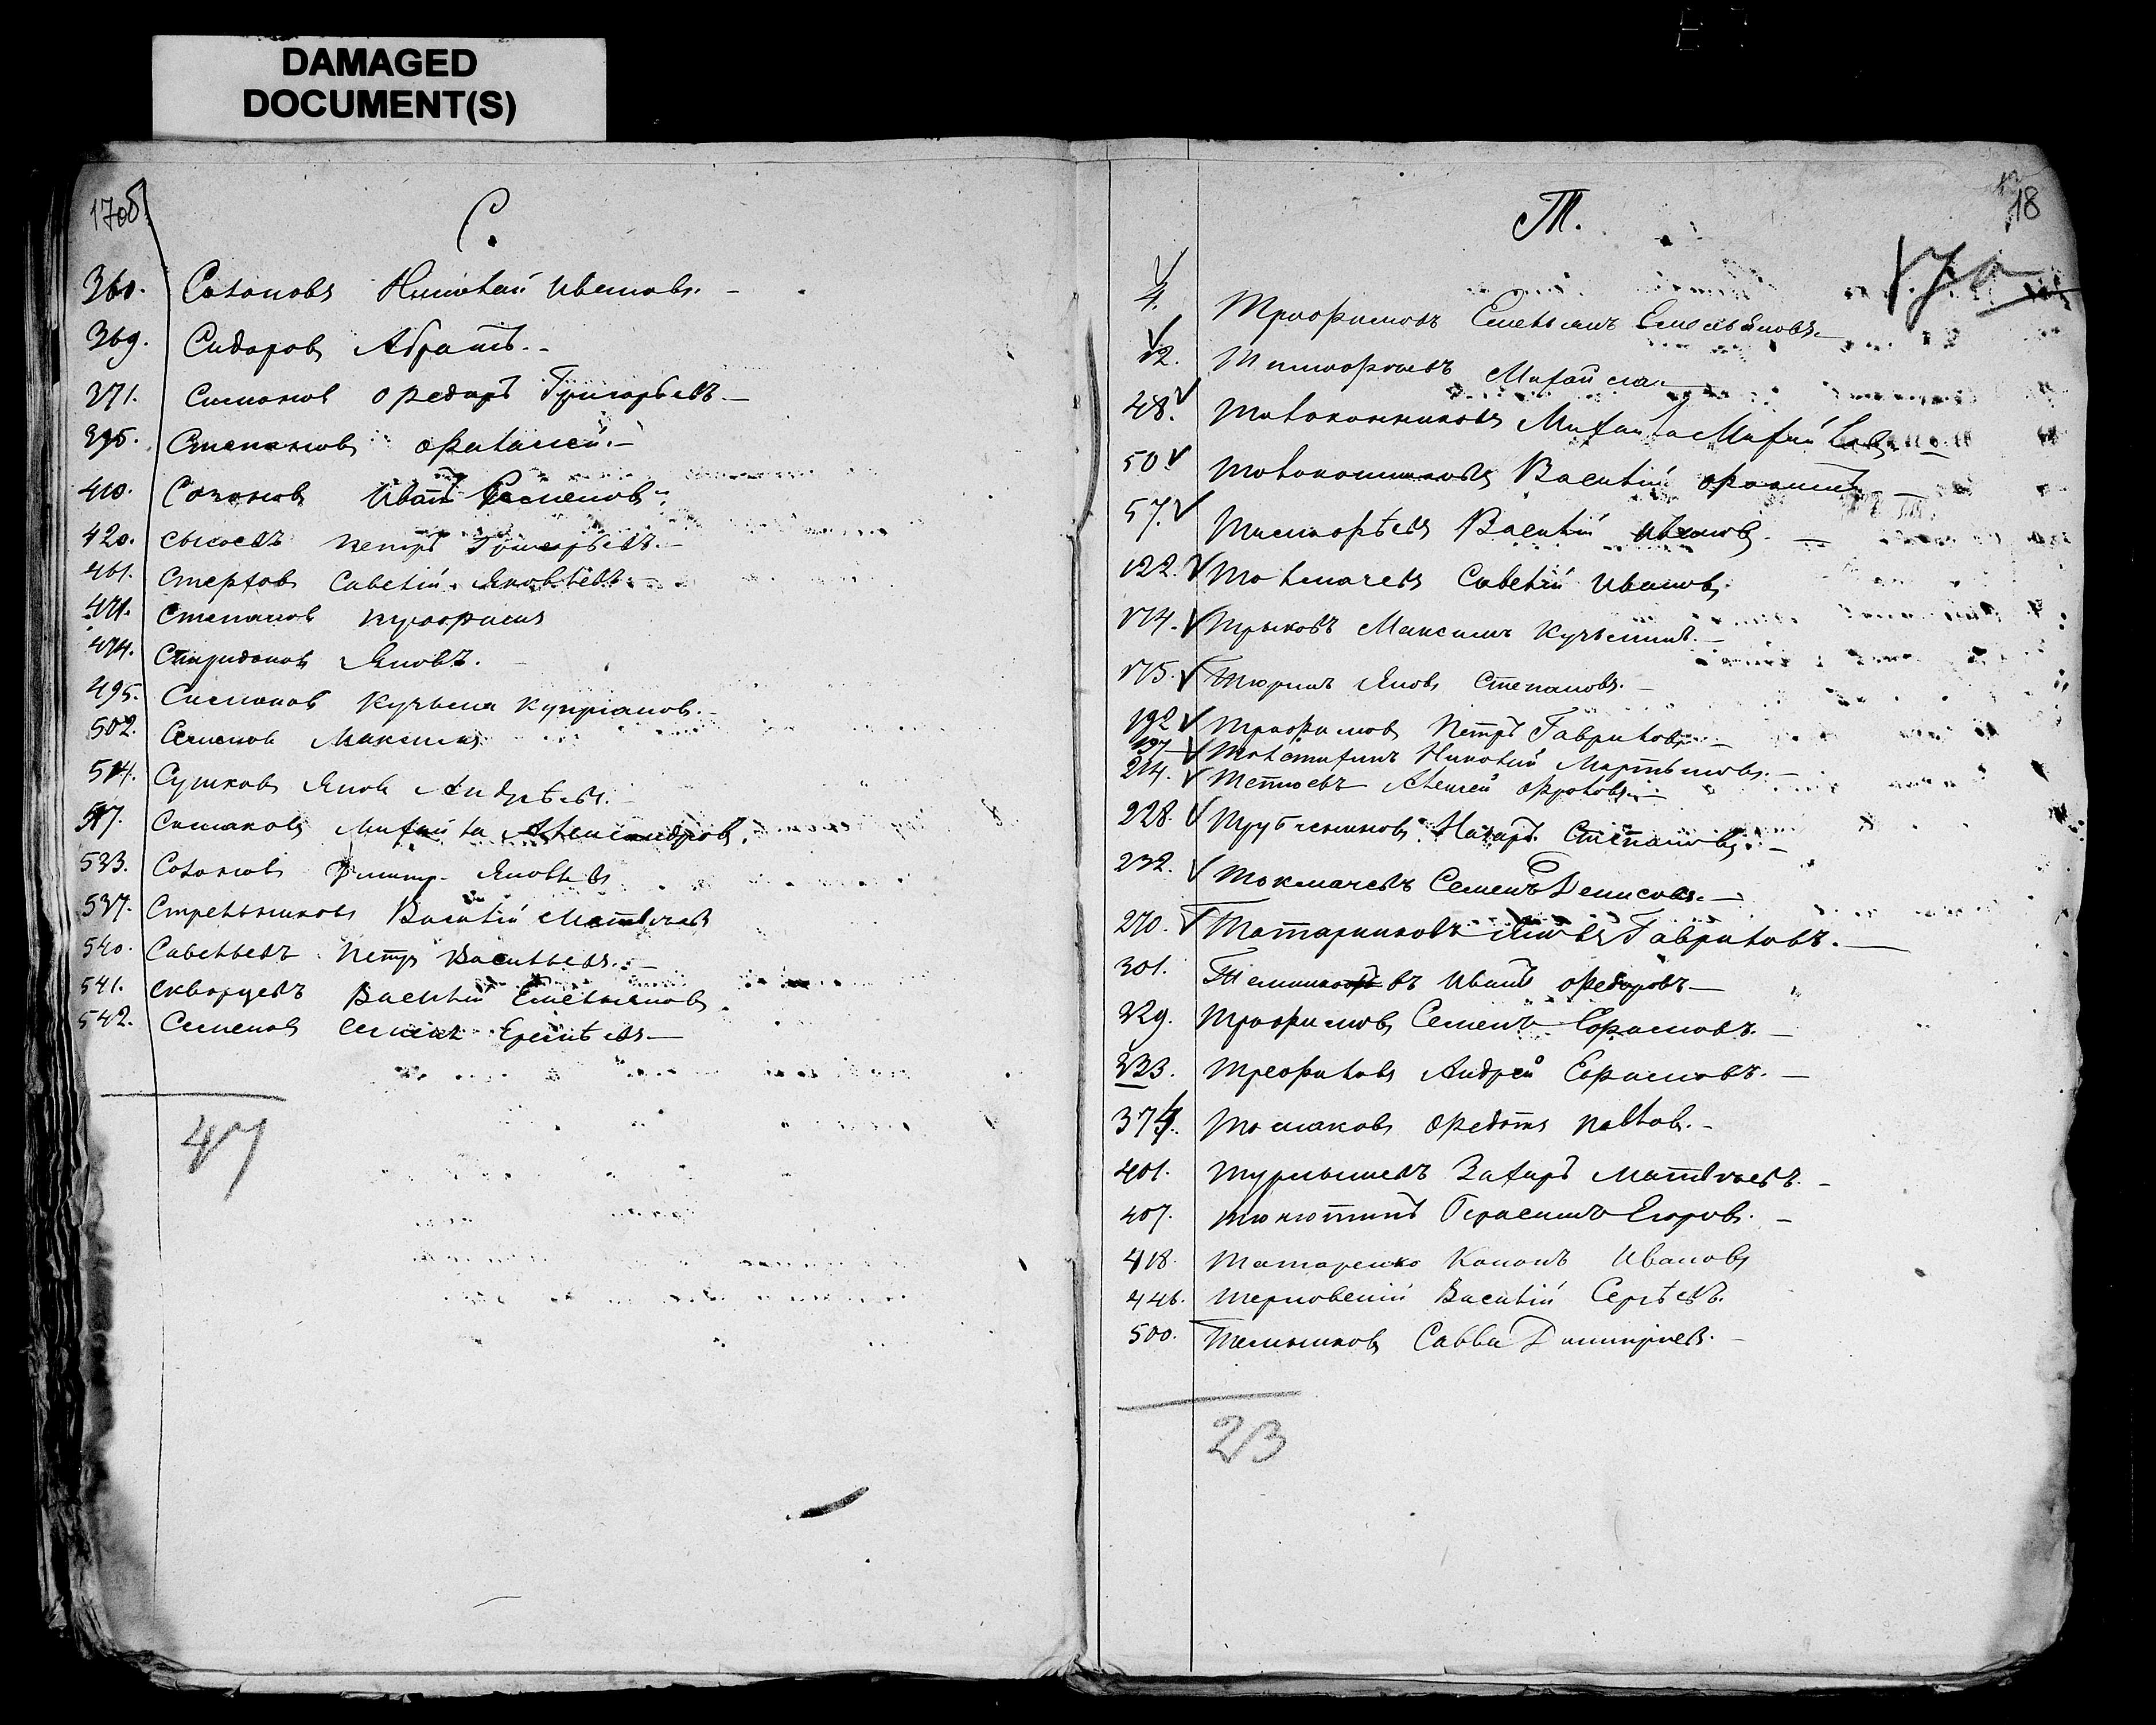 DAMAGED
DOCUMENT(S)
17об.
С.
360. Солоновъ Николай Ивановъ. –
369. Сидоровъ Абрамъ. –
371. Симоновъ Ѳедоръ Григорьевъ. –
395. Степановъ Фалалей. –
410. Созоновъ Иванъ Семеновъ
420. Сысоевъ Петръ Григорьевъ. –
461. Стерховъ Савелій Яковлевъ. –
471. Степановъ Трофимъ
474. Спиридоновъ Яковъ. –
495. Симоновъ Кузьма Купріановъ. –
502. Семеновъ Максимъ
514. Сушковъ Яковъ Андрѣевъ. –
517. Симаковъ Михайла Александровъ.
533. Солоновъ Дмитр. Яковлевъ
537. Стрельниковъ Василій Матвѣевъ
540. Савельевъ Петръ Васильевъ. –
541. Скворцевъ Василій Емельяновъ.
542. Семеновъ Семенъ Еремѣевъ. –
47
18
Т.
4. Трофимовъ Емельянъ Емельяновъ. –
12. Тимофѣевъ Михайла. –
48. Толоконниковъ Михайла Михайловъ. –
50. Толоконниковъ Василій –
57. Тимофѣевъ Василій Ивановъ. –
122. Толмачевъ Савелій Ивановъ.
174. Трыковъ Максимъ Кузьминъ. –
175. Тюринъ Яковъ Степановъ. –
192. Трофимовъ Петръ Гавриловъ. –
197. Толстихинъ Николай Мартыновъ. –
214. Тетюевъ Алексѣй Фроловъ. –
228. Трубченниковъ Назаръ Степановъ. –
232. Токмачевъ Семенъ Денисовъ. –
270. Татаринковъ Яковъ Гавриловъ. –
301. Иванъ Ѳедоровъ –
329. Трофимовъ Семенъ Ефимовъ. –
333. Треофиловъ Андрей Ефимовъ. –
374. Томаковъ Ѳедотъ Павлов. –
401. Турмышевъ Захаръ Матвѣевъ. –
407. Тюнютинъ Герасимъ Егоровъ. –
418. Татаренко Кононъ Ивановъ
446. Терновскій Василій Сергѣевъ.
500. Тельниковъ Савва Димитріев. –
23